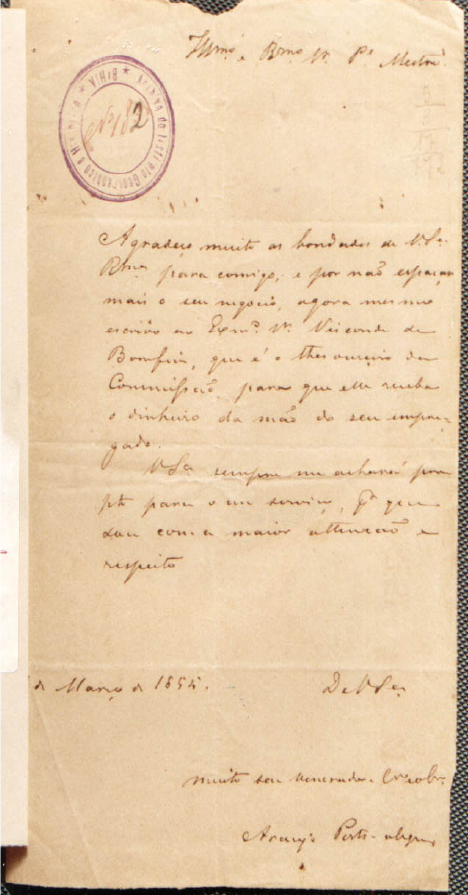 Illmo. e Rmo. Sr. Pe. Mestre
Archivo do Instituto Geographico e Historico
* BAHIA *
No 182
Agradeço muito as bondades de V. Sa.
Rma. para comigo, e por não espaçar
mais o seu negocio, agora mesmo
escrevo ao Exmo. Sr. Visconde de
Bomfim, que é o thesoureiro da
Commissão, para que elle receba
o dinheiro da mão do seu empre-
gado.
V. Sa. sempre me achará prom-
pto para o seu serviço, que
sou com a maior attenção e
respeito
de Março de 1854.
De V. Sa.
muito seu venerador e
Araujo Porto-alegre